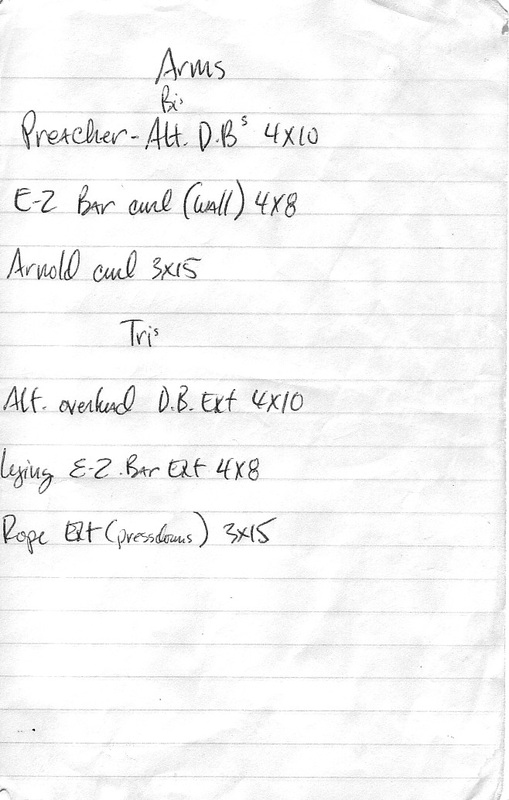 Arms
Bi's
Preacher - Alt. D.B's 4X10
E-Z Bar curl (wall) 4X8
Arnold curl 3X15
Tri's
Alt. overhead D.B. Ext 4X10
Lying E-Z Bar Ext 4X8
Rope Ext (pressdowns) 3X15